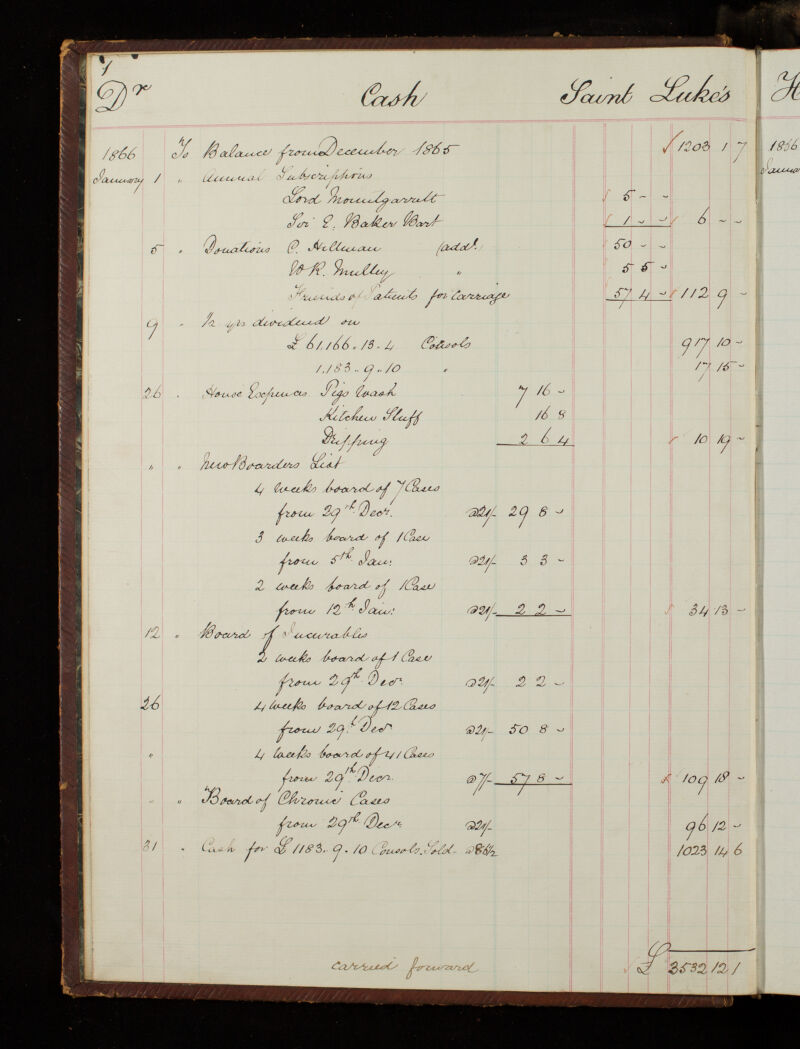 1
Dr Cash Saint Luke's H
1866 To Balance from December 1865 1203 1 7 1866
January 1 " Annual Subscriptions Janua
Lord Mountgarrett 5 - -
Sir E. Baker Bart 1 - - 6 - -
5 " Donations C. Hillman (addl.) 50 - -
W.R. Mulley " 5 5 -
Friends of Patients for Carriage 57 4 - 112 9 -
9 " ½ yrs dividend on
£61,166.. 13.. 4 Consols 917 10 -
1,183.. 9.. 10 " 17 15 -
26 " House Expences Pigs Wash 7 16 -
Kitchen Stuff 16 8
Dripping 2 6 4 10 19 -
" " New Boarders List
4 weeks board of 7 Cases
from 29th Decr. @ 21/- 29 8 -
3 weeks board of 1 Case
from 5th Jan: @ 21/- 3 3 -
2 weeks board of 1 Case
from 12th Jan: @ 21/- 2 2 - 34 13 -
12 " Board of Incurables
2 weeks board of 1 Case
from 29th Decr @ 21/- 2 2 -
26 4 weeks board of 12 Cases
from 29th Decr @ 21/- 50 8 -
" 4 weeks board of 41 Cases
from 29th Decr. @ 7/- 57 8 - 109 18 -
" " Board of Chronic Cases
from 29th Decr @ 21/- 96 12 -
31 " Cash for £1183.. 9.. 10 Consols Sold @ 86½ 1023 14 6
carried forward £ 3532 12 1